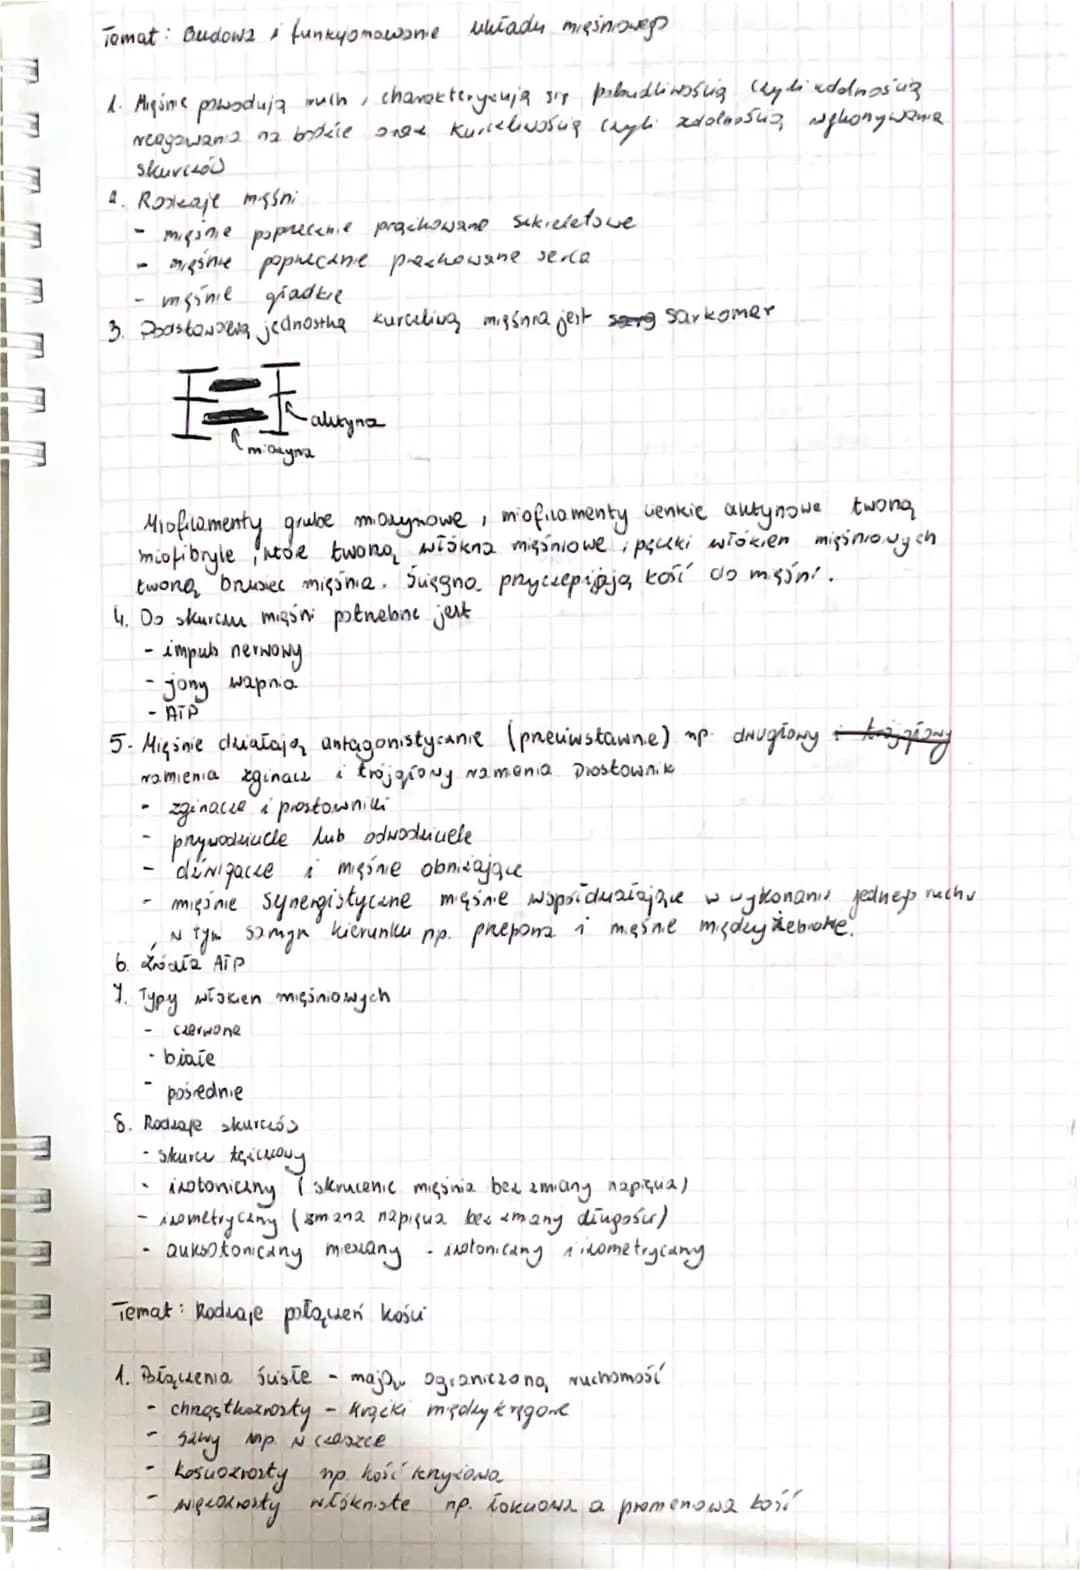 Temat: Budowa i funkcjonowanie układu mięśniowego
1. Mięśnie powodują ruch, charakteryzują się pobudliwością czyli zdolnością
reagowania na bodźce oraz kurczliwością czyli zdolnością wykonywania
skurczów
2. Rodzaje mięśni
- mięśnie poprzecznie prążkowane szkieletowe
- mięśnie poprzecznie prążkowane serca
- mięśnie gładkie
3. Podstawową jednostką kurczliwą mięśnia jest sarkomer
aktyna
miozyna
Miofilamenty grube miozynowe i miofilamenty cienkie aktynowe tworzą
miofibryle, które tworzą włókna mięśniowe i pęczki włókien mięśniowych
tworzą brzusiec mięśnia. Ścięgna przyczepiają kość do mięśni.
4. Do skurczu mięśni potrzebne jest
- impuls nerwowy
- jony wapnia
- ATP
5. Mięśnie działają antagonistycznie (przeciwstawne) np. dwugłowy i trójgłowy
ramienia zginacz i trójgłowy ramienia prostownik
- zginacze i prostowniki
- przywodziciele lub odwodziciele
- dźwigacze i mięśnie obniżające
- mięśnie synergistyczne mięśnie współdziałające w wykonaniu jednego ruchu
w tym samym kierunku np. przepona i mięśnie międzyżebrowe.
6. Źródła ATP
7. Typy włókien mięśniowych
- czerwone
- białe
- pośrednie
8. Rodzaje skurczów
- skurcz tężcowy
- izotoniczny (skrócenie mięśnia bez zmiany napięcia)
- izometryczny (zmiana napięcia bez zmiany długości)
- auksotoniczny mieszany - izotoniczny i izometryczny
Temat: Rodzaje połączeń kości
1. Połączenia ścisłe - mają ograniczoną ruchomość
- chrząstkozrosty - krążki międzykręgowe
- szwy np. w czaszce
- kościozrosty np. kość krzyżowa
- więzozrosty włókniste np. łokciowa a promieniowa kość